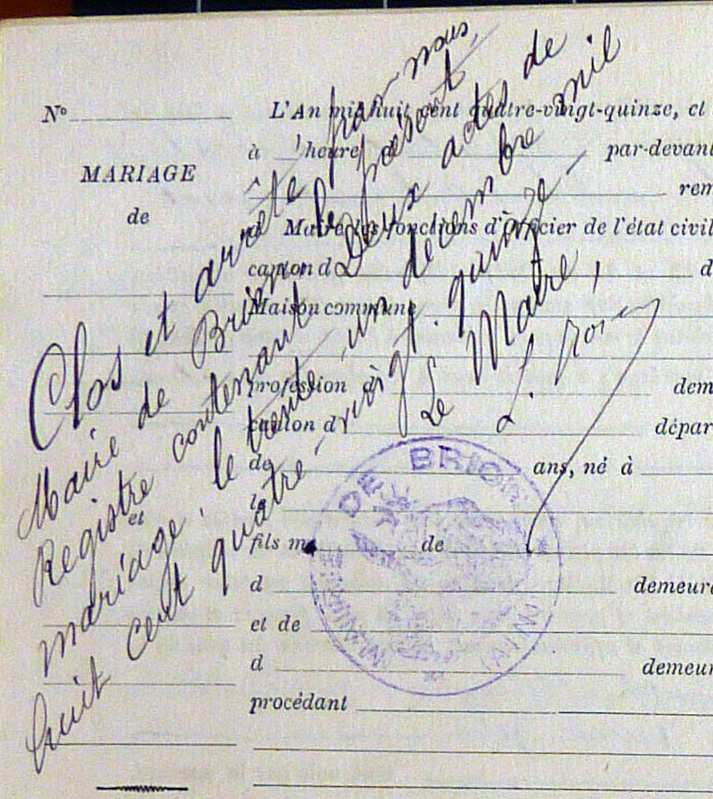 N°
L'An mil huit cent quatre-vingt-quinze, et
à heure par-devant
MARIAGE
de
rem
Maire les fonctions d'officier de l'état civil
canton d d
Maison commune
profession d dem
canton d dépar
de ans, né à
et
fils m de
d demeura
et de
d demeur
procédant
Clos et arrêté par nous,
Maire de Brion, le présent
Registre contenant Deux actes de
mariage, le trente-un décembre mil
huit cent quatre-vingt-quinze-
Le Maire,
MAIRIE DE BRION
(AIN)